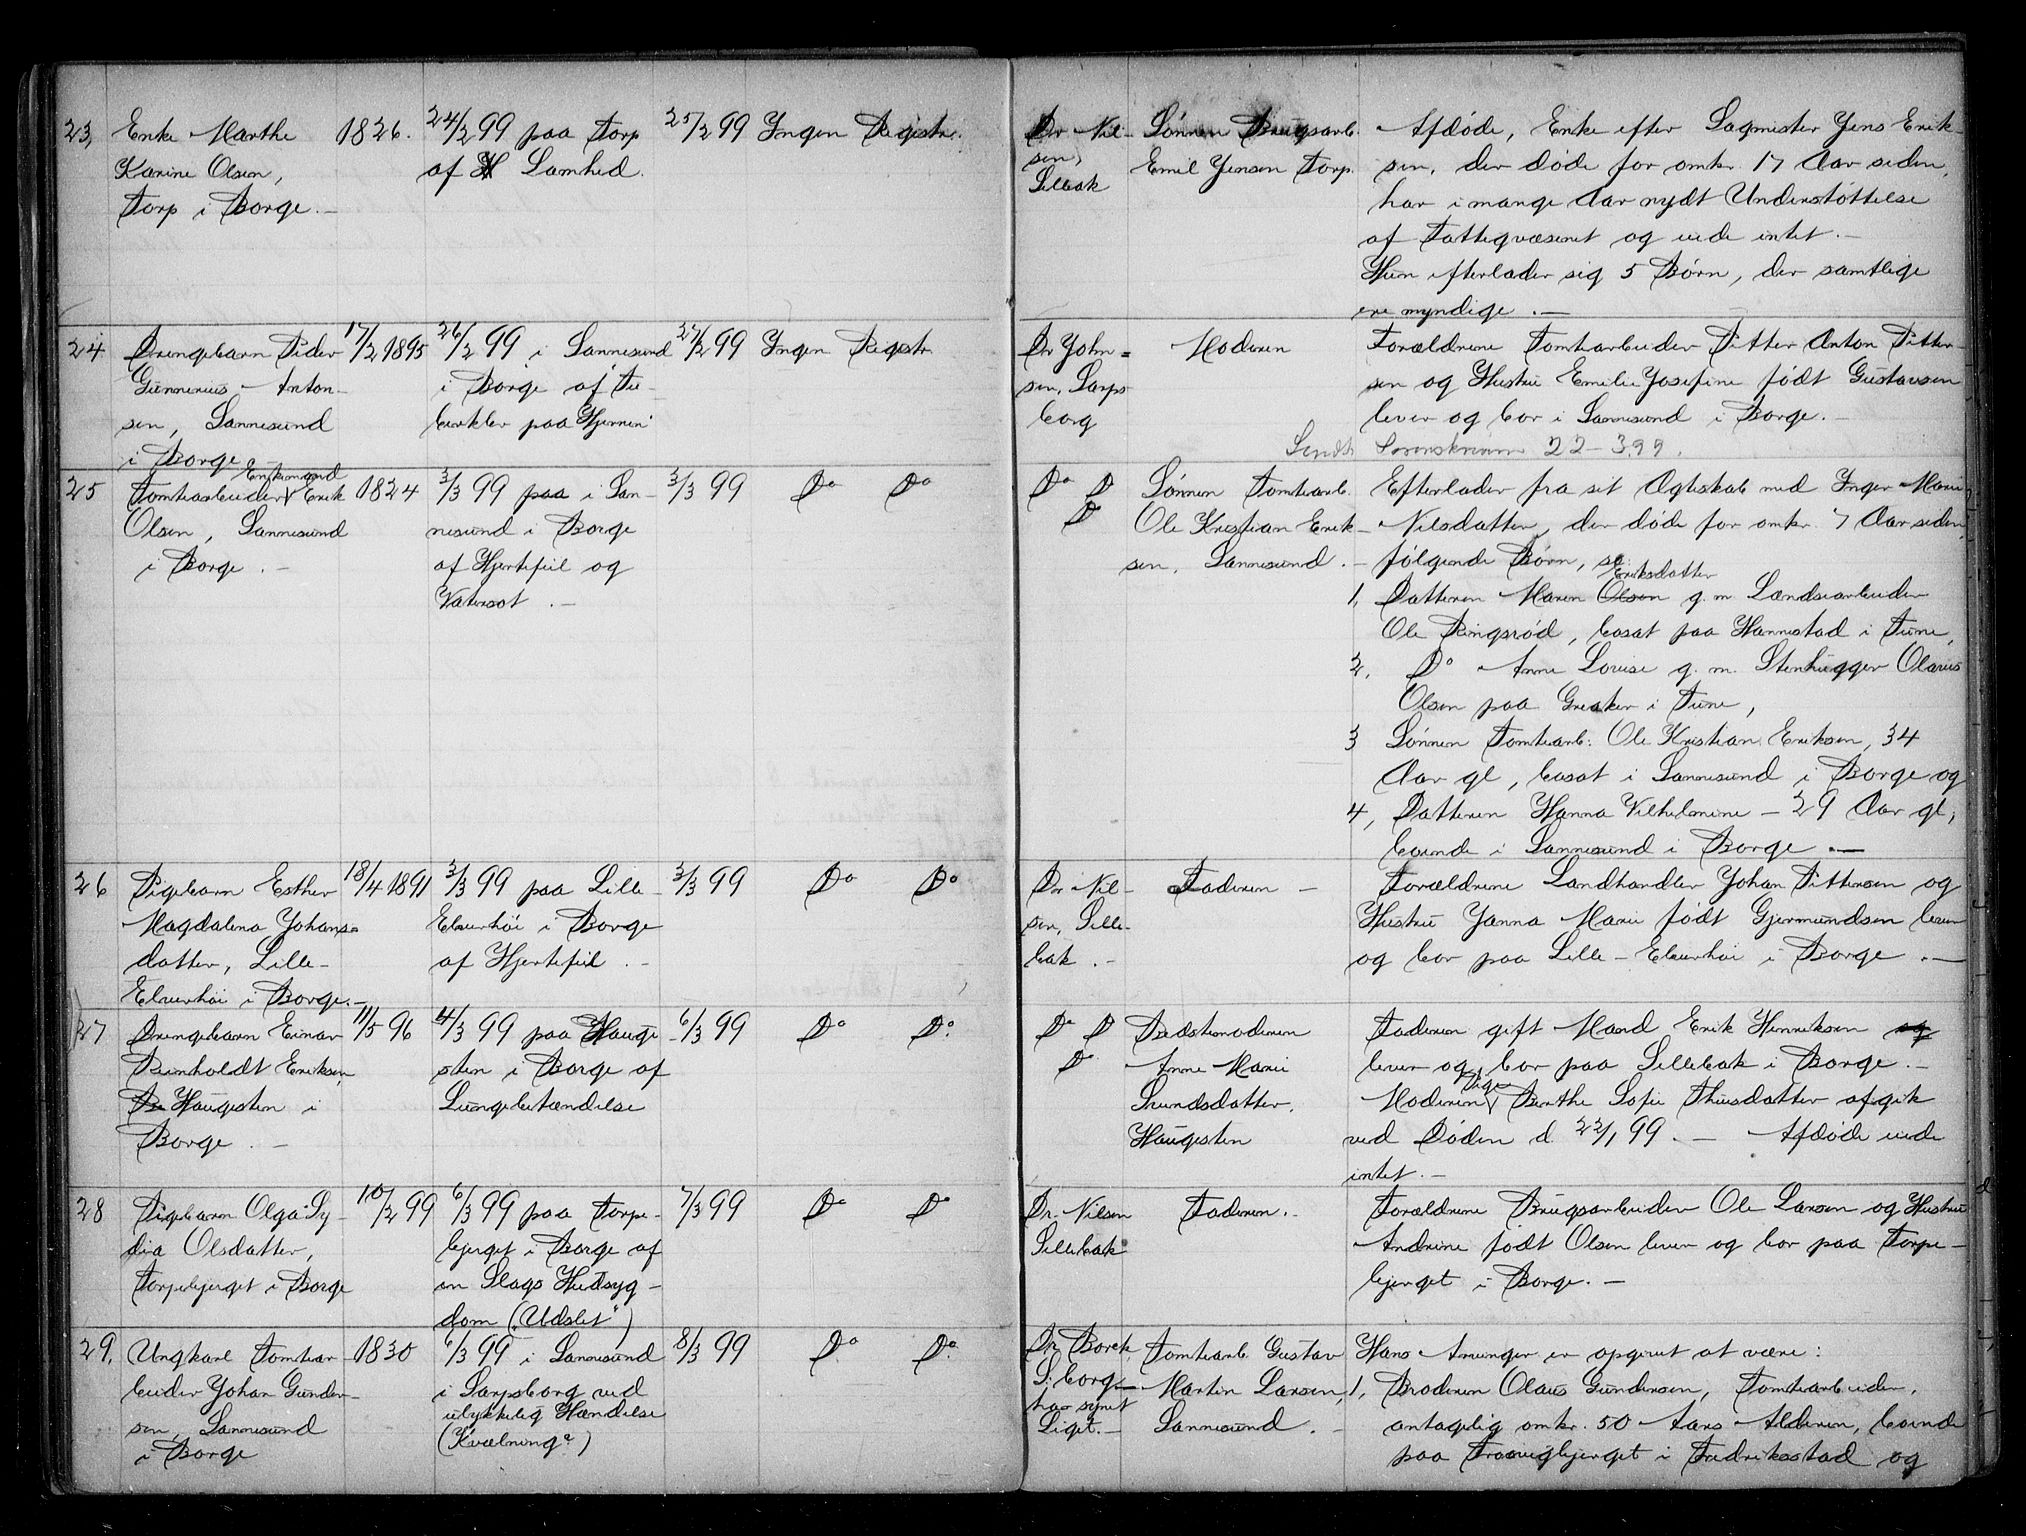 23, Enke Marthe 1826. 24/2 99 paa Torp 25/2 99 Ingen Registr. Dr Nil- Sønnen Brugsarb. Afdøde, Enke efter Sagmester Jens Erik
Karine Olsen, af Lamhed. sen, Emil Jensen Torp. sen, der døde for omkr. 17 Aar siden,
Torp i Borge.– Sellebak har i mange Aar nydt Understøttelse
af Fattigvæsenet og eiede intet.–
Hun efterlader sig 5 Børn, der samtlige
ere myndige.–
24 Drengebarn Peder 17/2 1895 26/2 99 i Sannesund 27/2 99 Ingen Registr. Dr John= Moderen Forældrene Tomtearbeider Petter Anton Petter-
Gunnerius Anton- i Borge af Tu- sen, Sarps sen og Hustru Emilie Josefine født Gustavsen
sen, Sannesund berkler paa Hjernen borg lever og bor i Sannesund i Borge.–
i Borge – Sendt Sorenskriveren 22-3.99.
25 Tomtearbeider Enkemand Erik 1824 3/3 99 paa i San- 3/3 99 Do Do Do D Sønnen Tomtearb. Efterlader fra sit Ægteskab med Inger Marie
Olsen, Sannesund nesund i Borge Do Ole Kristian Erik- Nilsdatter, der døde for omkr. 7 Aar siden,
i Borge.– af Hjertefeil og sen, Sannesund.– følgende Børn, se:
Vatersot.– 1, Datteren Maren Olsen Eriksdatter g. m. Landsearbeider
Ole Ringsrød, bosat paa Hannestad i Tune,
2, Do Anne Lovise g. m. Stenhugger Olaves
Olsen paa Greaker i Tune,
3 Sønnen Tomtearb: Ole Kristian Eriksen, 34
Aar gl, bosat i Sannesund i Borge og
4, Datteren Hanna Vilhelmine – 29 Aar gl,
boende i Sannesund i Borge.–
26 Pigebarn Esther 18/4 1891 3/3 99 paa Lille- 3/3 99 Do Do Dr Nil- Faderen – Forældrene Landhandler Johan Pettersen og
Magdalena Johans= Elverhøi i Borge sen, Selle- Hustru Janna Marie født Gjermundsen lever
datter, Lille- af Hjertefeil.– bak.– og bor paa Lille-Elverhøi i Borge.–
Elverhøi i Borge.–
27 Drengebarn Einar 11/5 96 4/3 99 paa Hauge- 6/3 99 Do Do Do D Bedstemoderen Faderen gift Mand Erik Henriksen og
Reinholdt Eriksen, sten i Borge af Do Anne Marie lever og bor paa Sellebak i Borge.–
Bo Haugesten i Lungebetændelse Svendsdatter, Moderen Pige Berthe Sofie Thuesdatter afgik
Borge.– Haugesten ved Døden d. 22/1 99.– Afdøde eiede
intet.–
28 Pigebarn Olga Ly- 10/2 99 6/3 99 paa Torpe- 7/3 99 Do Do Dr. Nilsen Faderen.– Forældrene Brugsarbeider Ole Larsen og Hustru
dia Olsdatter, bjerget i Borge af Sellebak Andrine født Olsen lever og bor paa Torpe-
Torpebjerget i Borge en Slags Hudsyg- bjerget i Borge.–
dom („Udslet“)
29, Ungkarl Tomtear- 1830 6/3 99 i Sannesund 8/3 99 Do Do Dr Borch, Tomtearb. Gustav Hans Arvinger er opgivet at være:
beider Johan Gunder- i Sarpsborg ved S. borg– Martin Larsen, 1, Broderen Olaus Gundersen, Tomtearbeider,
sen, Sannesund ulykkelig Hændelse har synet Sannesund.– antagelig omkr. 50 Aars Alderen, boende
i Borge (Kvælning?) Liget.– paa Traavigbjerget i Fredriksstad og